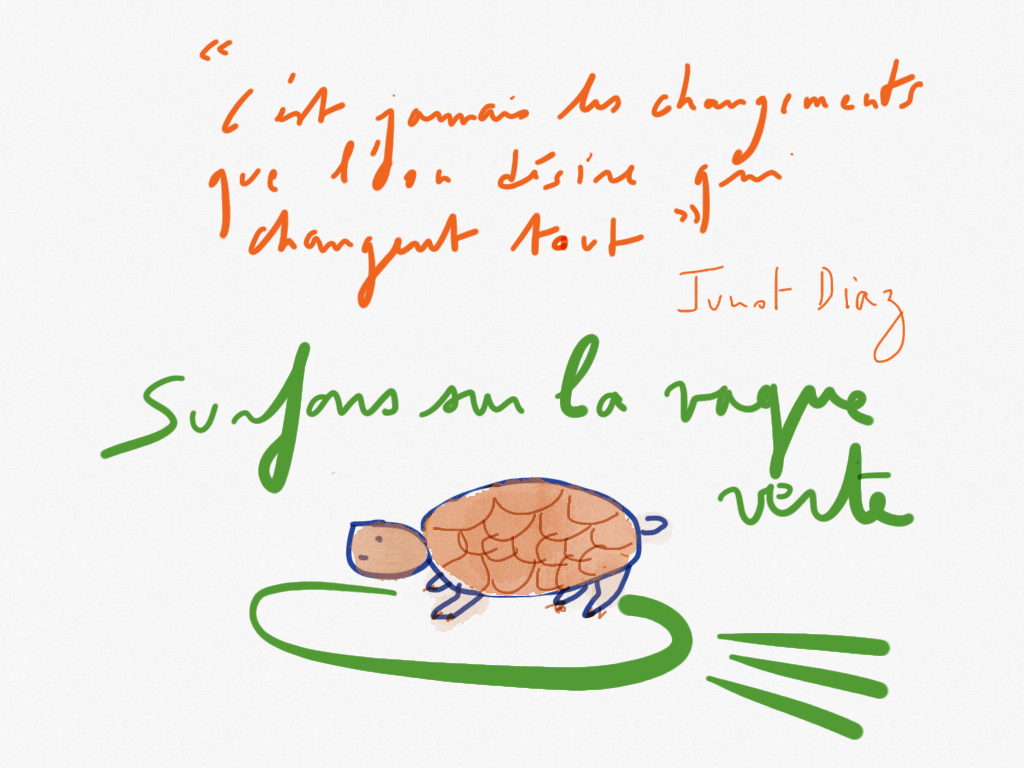 “
c'est jamais les changements
que l'on désire qui
changent tout ”
Junot Diaz
Surfons sur la vague
verte